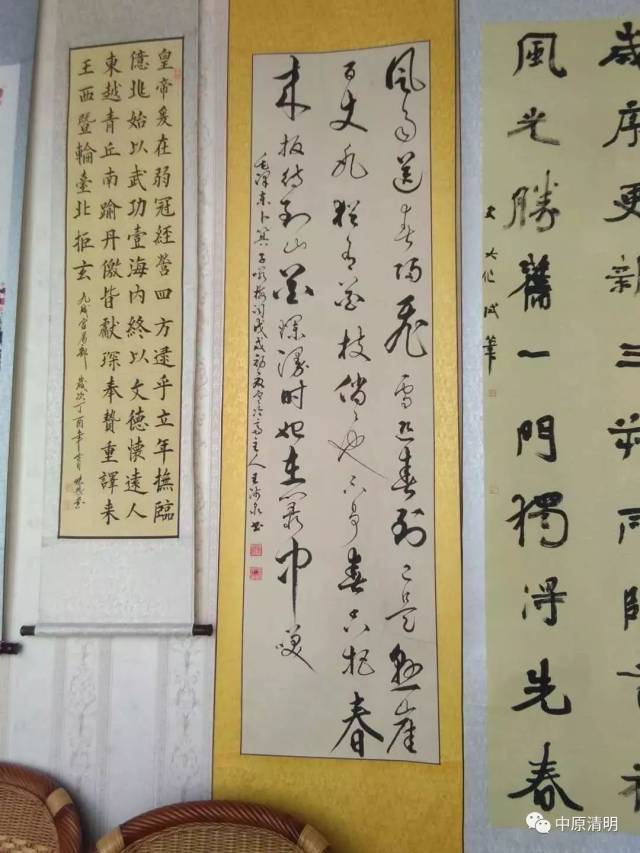 皇帝爰在弱冠經營四方逮乎立年撫臨
億兆始以武功壹海內終以文德懷遠人
東越青丘南踰丹儌皆獻琛奉贄重譯来
王西暨輪臺北拒玄 九成宮 歲次丁酉年
风雨送春归飛雪迎春到已是悬崖
百丈冰猶有花枝俏俏也不争春只把春
来报待到山花烂漫时她在丛中笑
毛泽东卜算子咏梅词戊戌初夏 主人王 书
歲序更新三
風光勝舊一門獨得先春
中原清明